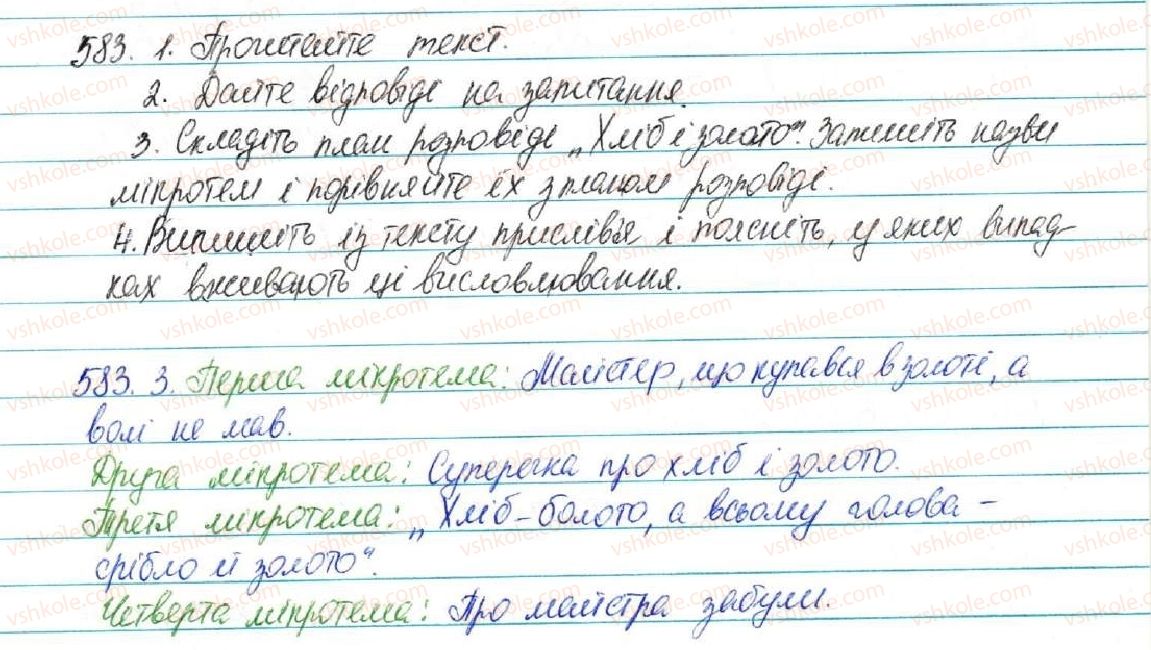 583. 1. Прочитайте текст.
2. Дайте відповіді на запитання.
3. Складіть план розповіді „Хліб і золото". Запишіть назви
мікротем і порівняйте їх з планом розповіді.
4. Випишіть із тексту прислів'я і поясніть, у яких випад-
ках вживають ці висловлювання.
583. 3. Перша мікротема: Майстер, що купався в золоті, а
волі не мав.
Друга мікротема: Суперечка про хліб і золото.
Третя мікротема: „Хліб – болото, а всьому голова –
срібло й золото".
Четверта мікротема: Про майстра забули.